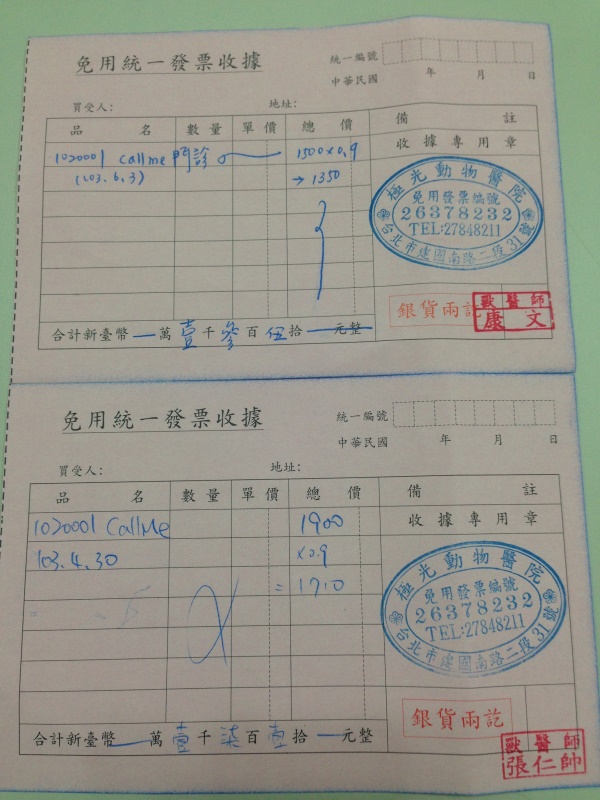 免用統一發票收據
統一編號
中華民國 年 月 日
買受人： 地址：
品 名 數量 單價 總 價 備 註
收據專用章
1020001 callme 門診 1500×0.9
(103.6.3) →1350
極光動物醫院
免用發票編號
26378232
TEL:27848211
台北市建國南路二段31號
銀貨兩訖
獸醫師
康文
合計新臺幣 萬 壹 千 參 百 伍 拾 元整
免用統一發票收據
統一編號
中華民國 年 月 日
買受人： 地址：
品 名 數量 單價 總 價 備 註
收據專用章
1020001 CallMe 1900
103.4.30 ×0.9
=1710
極光動物醫院
免用發票編號
26378232
TEL:27848211
台北市建國南路二段31號
銀貨兩訖
獸醫師
張仁帥
合計新臺幣 萬 壹 千 柒 百 壹 拾 元整